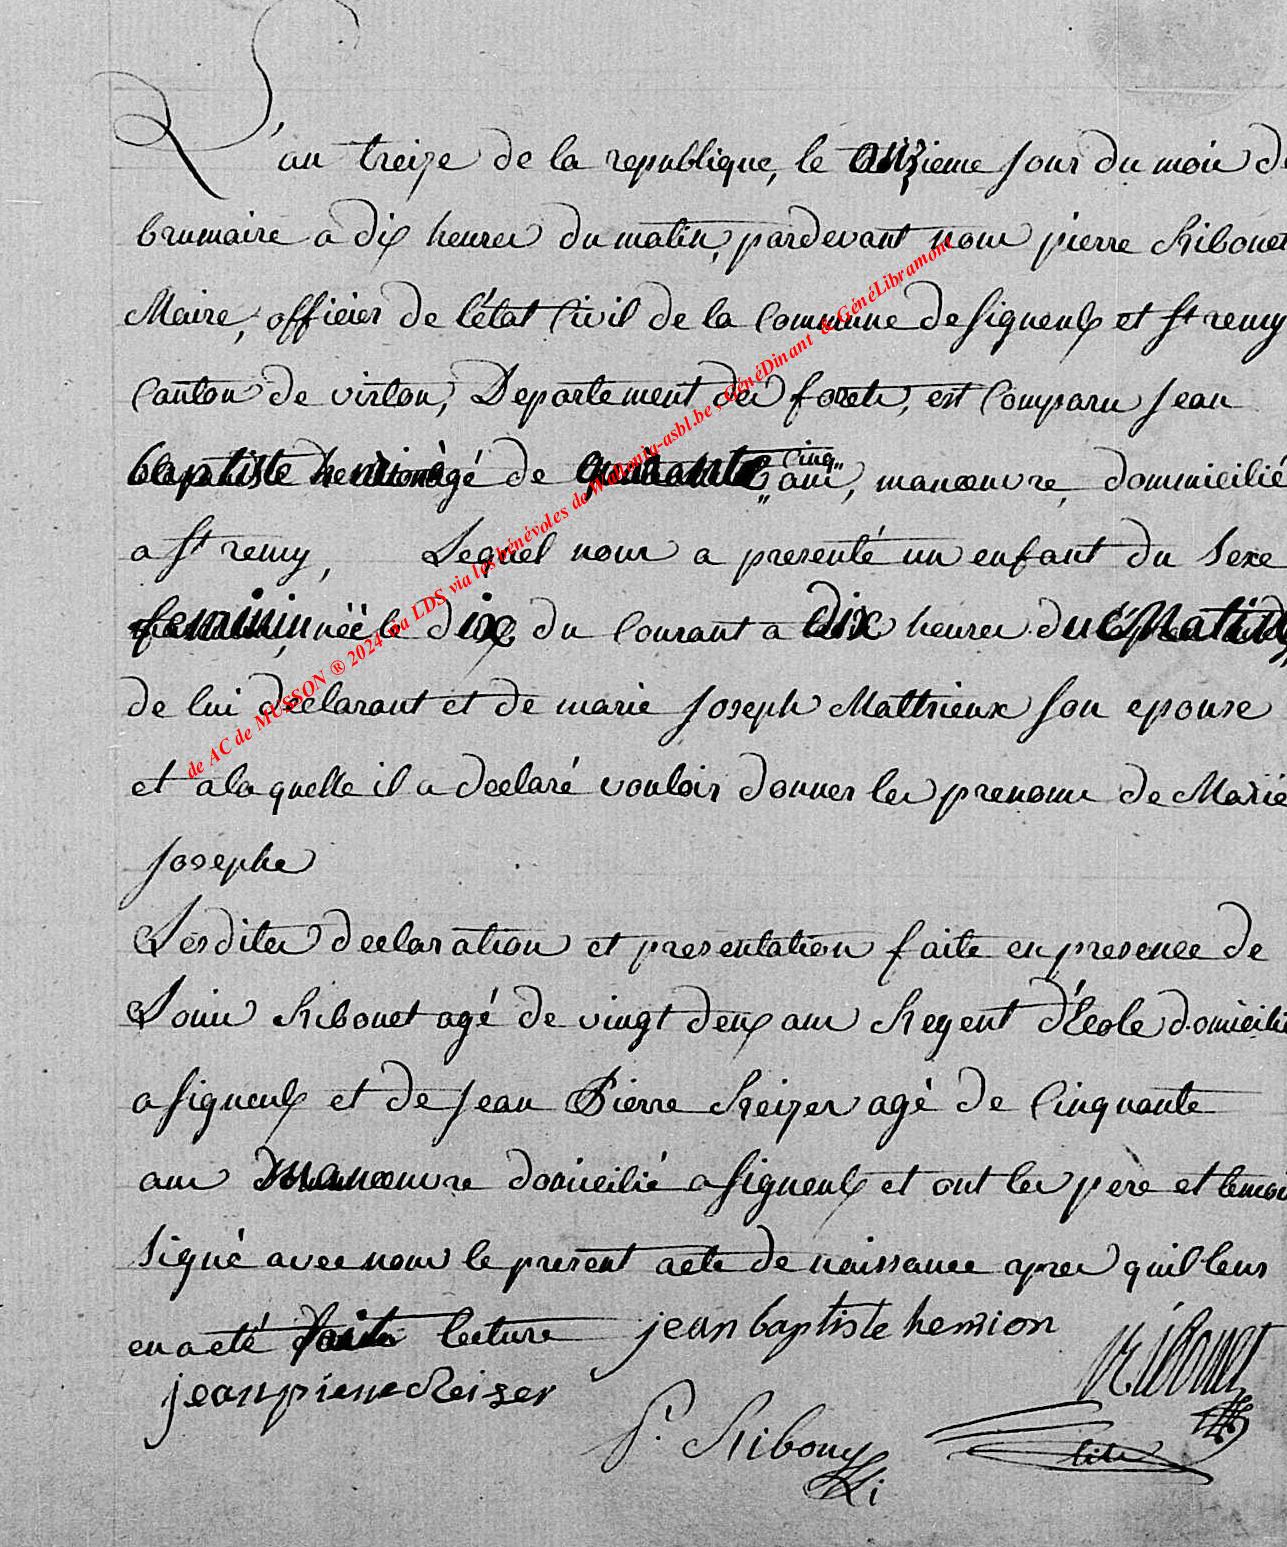 L'an treize de la republique, le onzieme jour du mois de
brumaire a dix heures du matin, pardevant nous pierre Ribonet
Maire, officier de l'état Civil de la Commune de signeulx et st remy
Canton de virton, Departement des forets, est Comparu jean
baptiste henrion agé de quarante Cinq ans, manœuvre, dommicilié
a st remy, Lequel nous a presenté un enfant du Sexe
feminin, néé le dix du Courant a dix heures du Matin
de lui declarant et de marie joseph Matthieux son epouse
et a la quelle il a declaré vouloir donner les prenoms de Marie
josephe
Lesdites declaration et presentation faite en presence de
Louis Ribonet agé de vingt deux ans Regent d'École domicilié
a signeulx et de jean Pierre Reizer agé de Cinquante
ans manœuvre domicilié a signeulx et ont les père et temoins
signé avec nous le present acte de naissance apres quil leur
en a été fait lecture jean baptiste henrion
jean pierre Reiser Ribonet
P. Ribonet
de AC de MUSSON ® 2024 via LDS via les bénévoles de Wallonia-asbl.be, GénéDinant & GénéLibramont